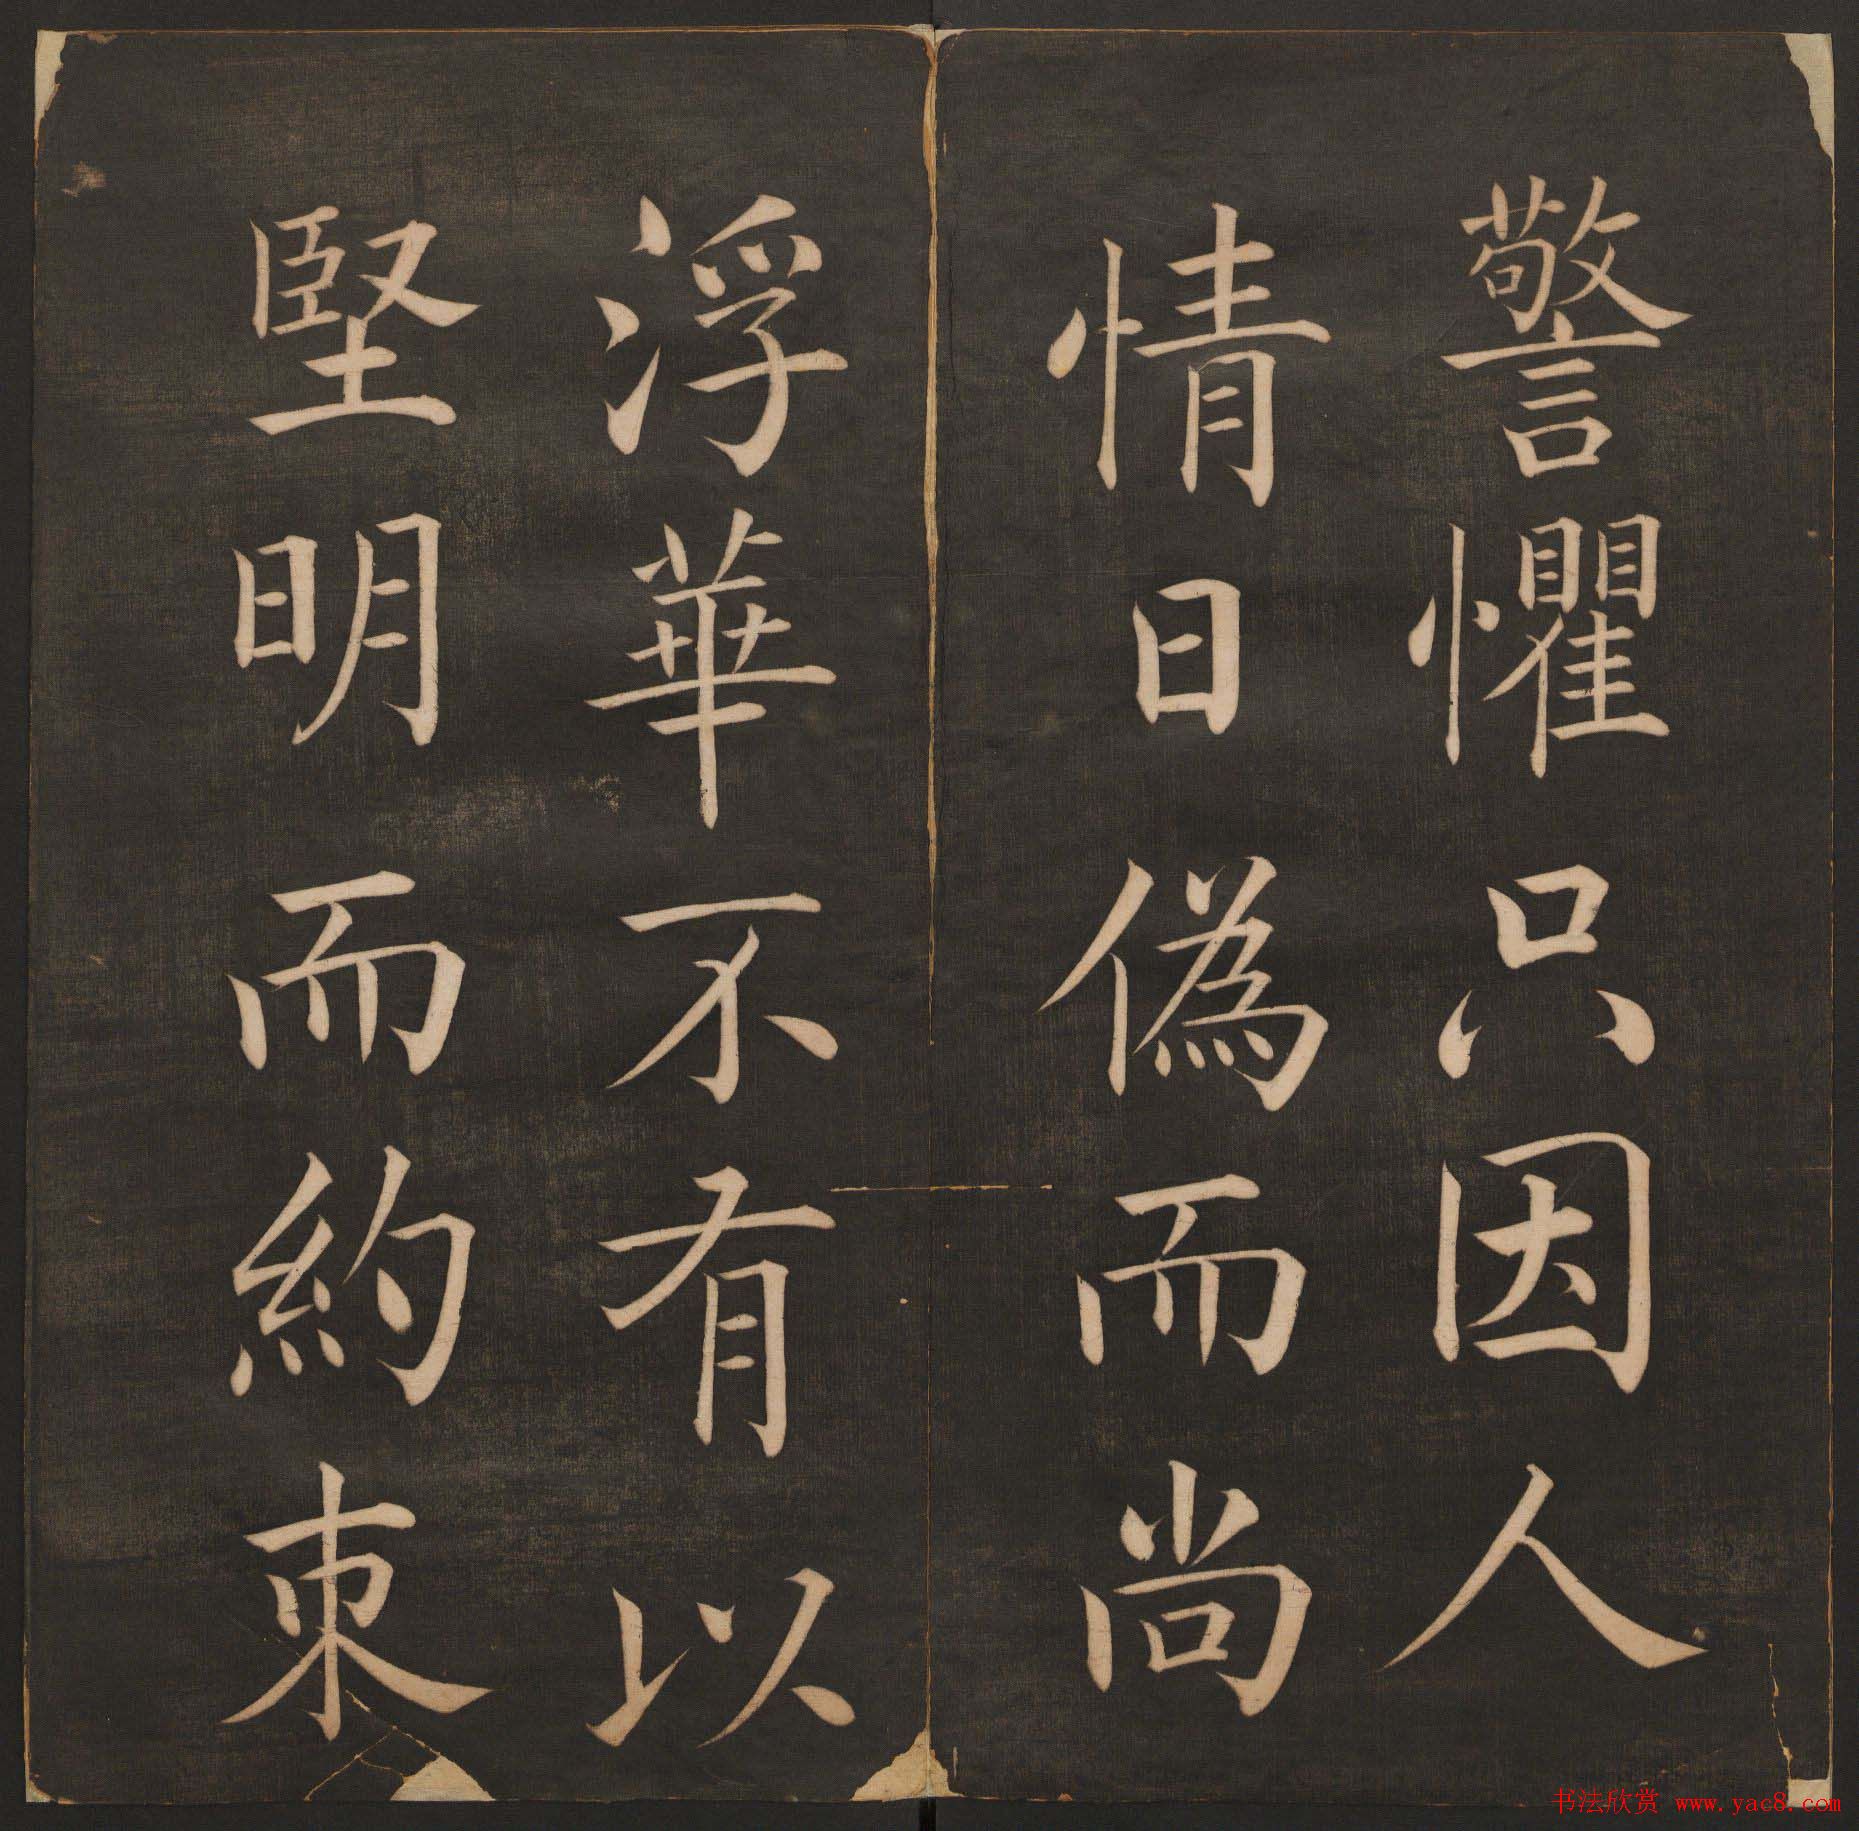 警懼只因人
情日偽而尚
浮華不有以
堅明而約束
书法欣赏 www.yac8.com